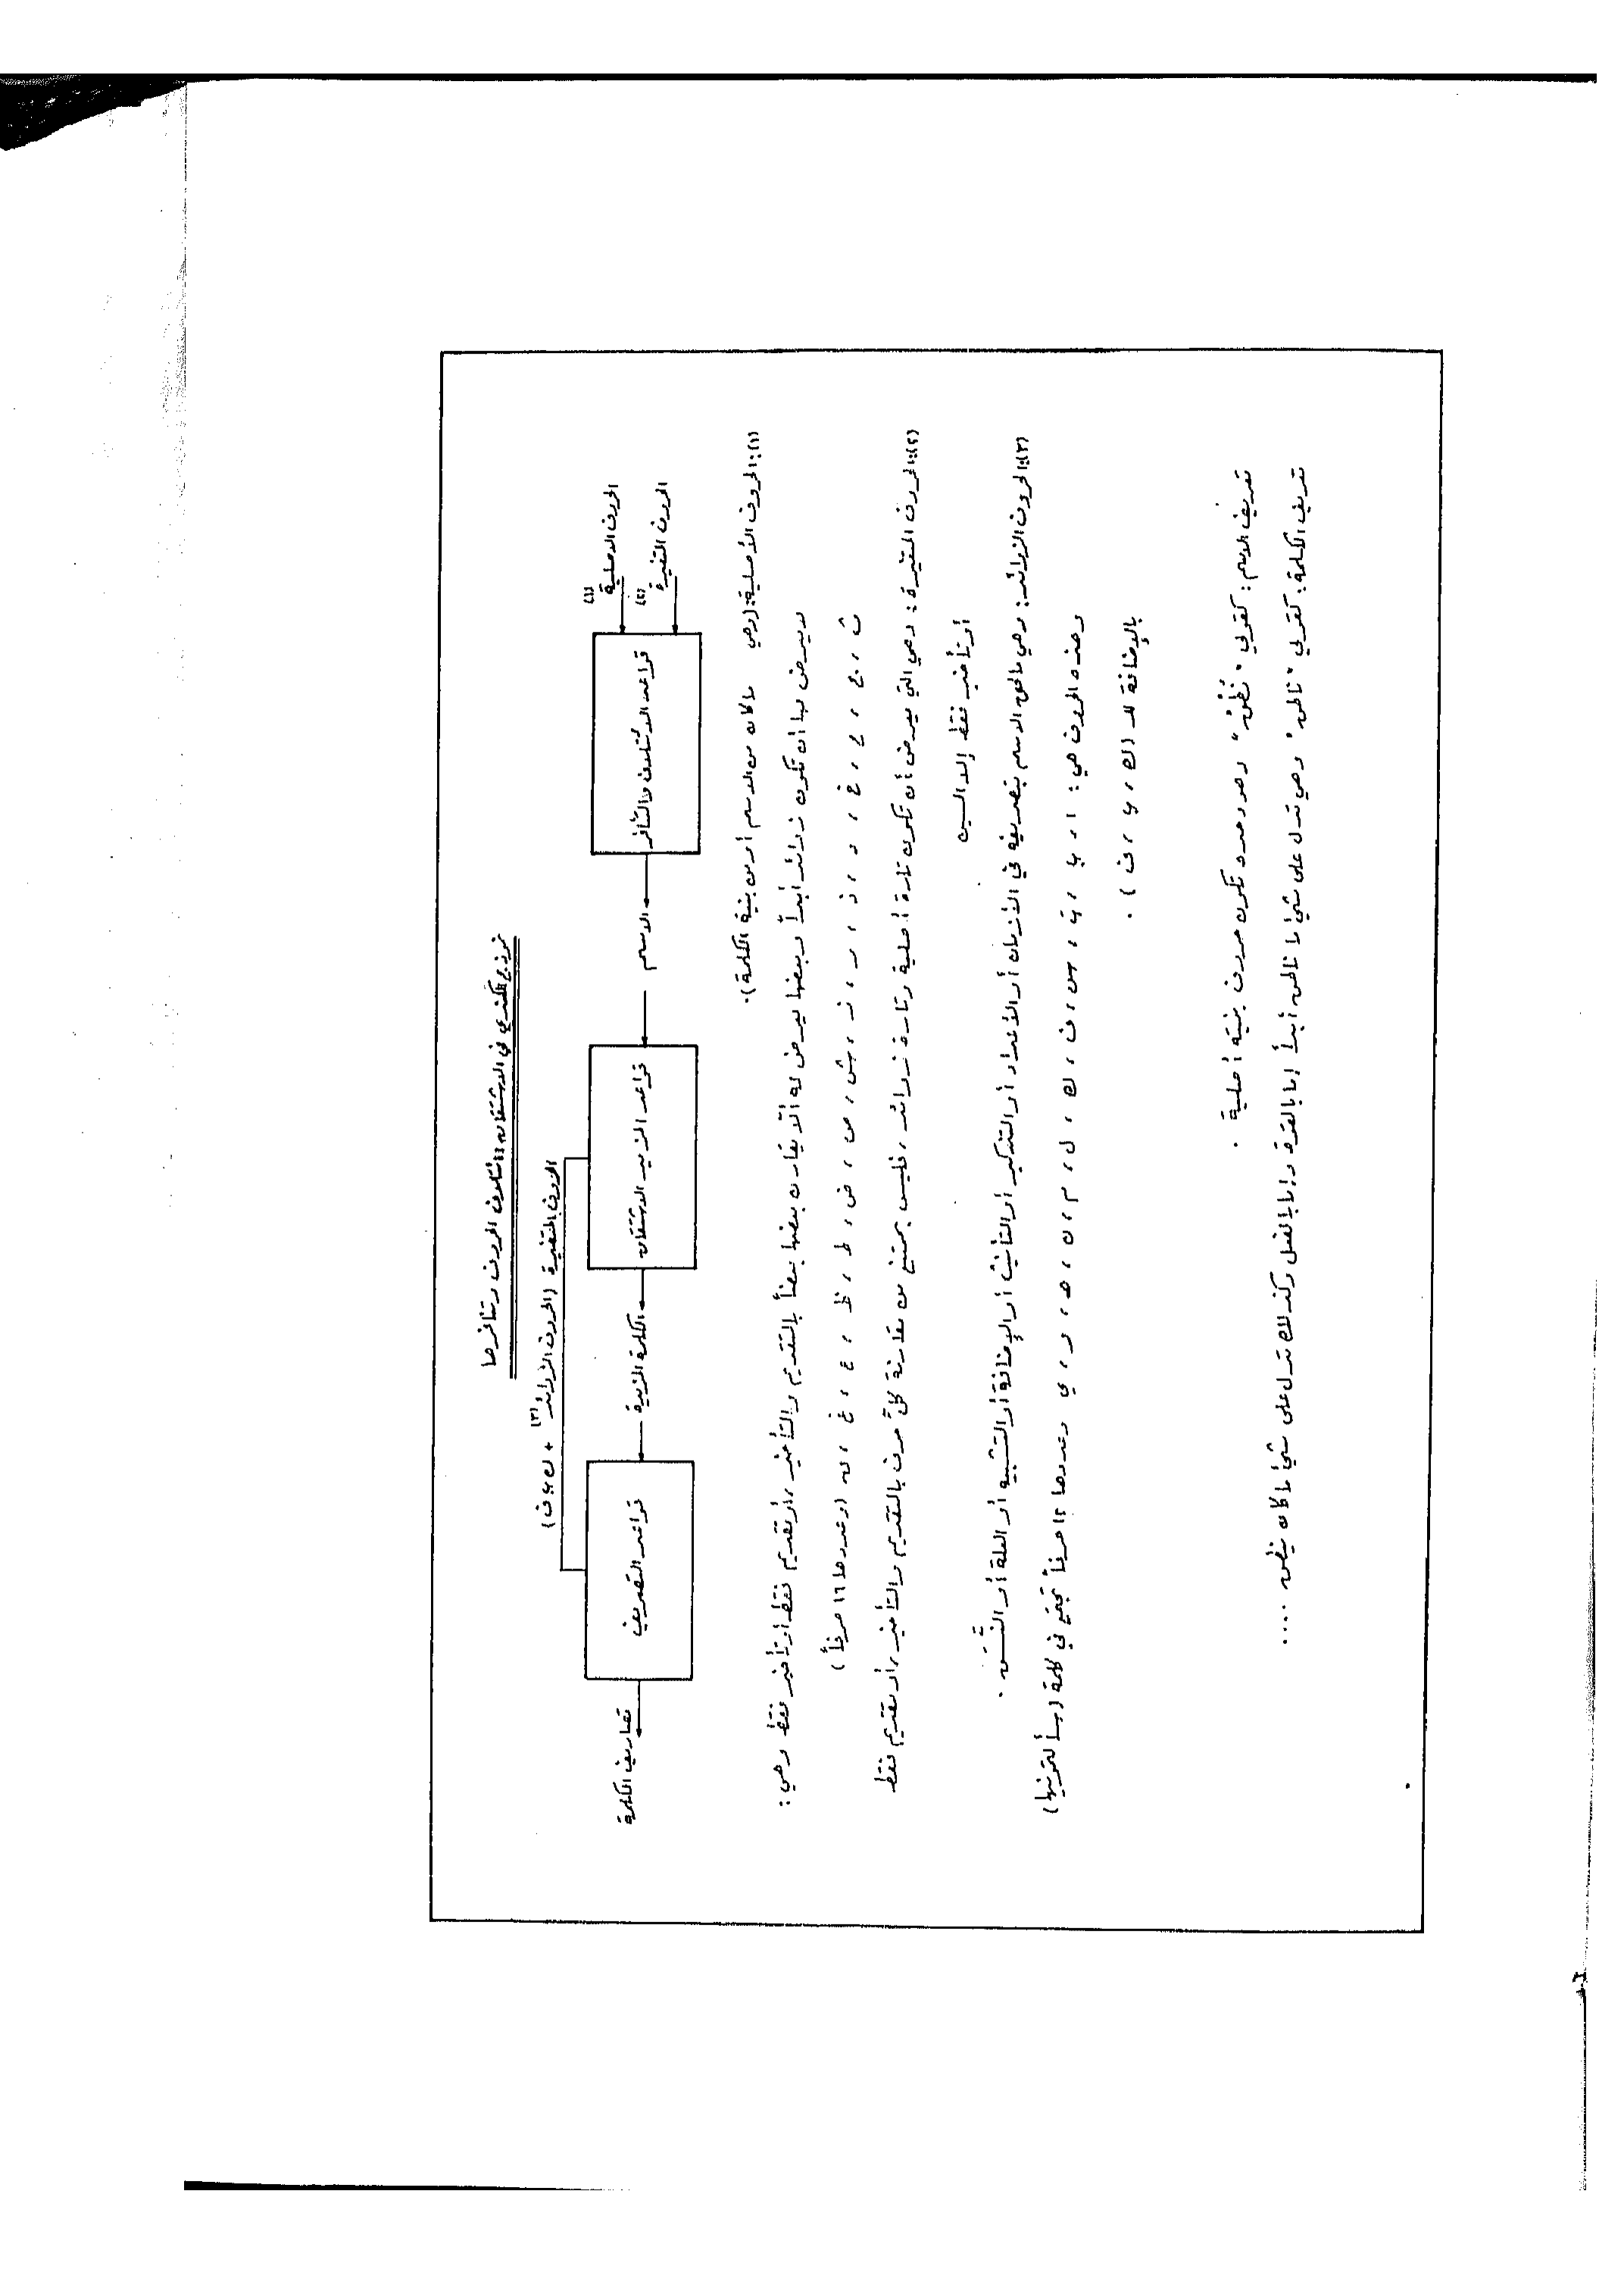 نموذج الكندي في الاشتقاق وائتلاف الحروف وتنافرها
الحروف الأصلية (١)
الحروف المتغيرة (٢)
قواعد الائتلاف والتنافر
الاسم
قواعد المزيد الاشتقاق
الكلمة المزيدة
قواعد التصريف
تصاريف الكلمة
الحروف المتغيرة (الحروف الزوائد (٣) + ك، ب، ف)
(١): الحروف الأصلية: (وهي ما كان من الاسم أو من بنية الكلمة).
لا يعرض لها أن تكون زوائد أبداً وبعضها يعرض له ألّا يقارن بعضها بعضاً بالتقديم والتأخير، أو تقديم فقط او تأخير فقط وهي:
ث، ج، ح، خ، د، ذ، ر، ز، ش، ص، ض، ط، ظ، ع، غ، ق (وعددها ١٦ حرفاً)
(٢): الحروف المتغيرة: وهي التي يعرض أن تكون تارة أصلية وتارة زوائد، فليس بممتنع من مقارنة كلّ حرف بالتقديم والتأخير، أو تقديم فقط
أو تأخير فقط إلا السين
(٣): الحروف الزوائد: وهي ما لحق الاسم بتصريفه في الأزمان أو الأعداد أو التذكير أو التأنيث أو الإضافة أو التشبيه أو العلة أو النَّسَق.
وهذه الحروف هي: ا، ب، ت، س، ف، ك، ل، م، ن، ه، و، ي وعددها ١٢ حرفاً تجتمع في كلمة (سألتمونيها)
بالإضافة لـ (ك، ب، ف).
تعريف الاسم: كقولي "نُطْق" وهو وحده تكون حروف بنيته أصلية.
تعريف الكلمة: كقولي "ناطق" وهي تدل على شيء ما ناطق أبداً إما بالقوة وإما بالفعل وكذلك تدل على شيء ما كان ينطق ....